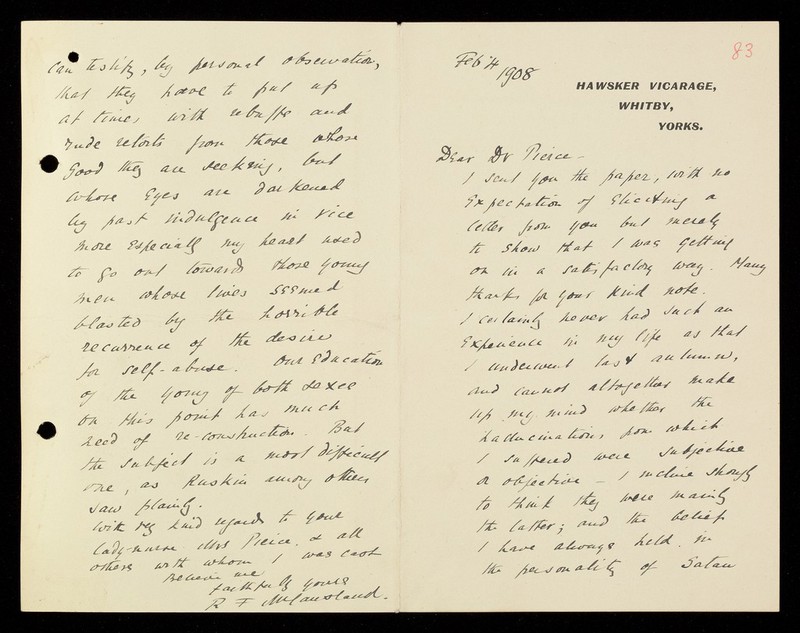 83
Feb 4
1908
HAWSKER VICARAGE,
WHITBY,
YORKS.
Dear Dr Pierce -
I sent you the paper, with no
expectation of eliciting a
letter from you but merely
to show that I was getting
on in a satisfactory way. Many
thanks for your kind note.
I certainly never had such an
experience in my life as that
I underwent last autumn,
and cannot altogether make
up my mind whether the
hallucinations from which
I suffered were subjective
or objective - I incline strongly
to think they were mainly
the latter; and the belief
I have always held in
the personality of Satan
can testify, by personal observation,
that they have to put up
at times with rebuffs and
rude retorts from those whose
good they are seeking, but
whose eyes are darkened
by past indulgence in vice
more especially my heart used
to go out towards those young
men whose lives seemed
blasted by the horrible
recurrence of the desire
for self-abuse. Our education
of the young of both sexes
on this point has much
need of re-construction. But
the subject is a most difficult
one, as Ruskin among others
saw plainly.
With my kind regards to your
Lady-nurse, Mrs Pierce, & all
others with whom I was cast
Believe me
faithfully yours
R F McCausland.